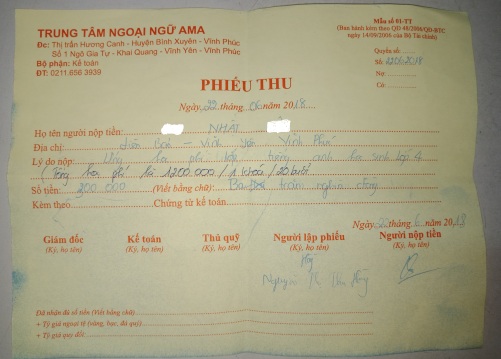 TRUNG TÂM NGOẠI NGỮ AMA
Đc: Thị trấn Hương Canh - Huyện Bình Xuyên - Vĩnh Phúc
Số 1 Ngô Gia Tự - Khai Quang - Vĩnh Yên - Vĩnh Phúc
Bộ phận: Kế toán
ĐT: 0211.656 3939
Mẫu số 01-TT
(Ban hành kèm theo QĐ 48/2006/QĐ-BTC
ngày 14/09/2006 của Bộ Tài chính)
Quyển số:
Số:
Nợ:
Có:
PHIẾU THU
Ngày 22 tháng 06 năm 2018
Họ tên người nộp tiền: NHẬT
Địa chỉ: Vĩnh Yên Vĩnh Phúc
Lý do nộp: học phí lớp tiếng anh học sinh lớp 4
(Tổng học phí là 1200.000 / 1 khoá / 20 buổi)
Số tiền: 300.000 (Viết bằng chữ): Ba trăm nghìn đồng
Kèm theo: Chứng từ kế toán:
Ngày 22 tháng 6 năm 2018
Giám đốc Kế toán Thủ quỹ Người lập phiếu Người nộp tiền
(Ký, họ tên) (Ký, họ tên) (Ký, họ tên) (Ký, họ tên) (Ký, họ tên)
Nguyễn
Đã nhận đủ số tiền (Viết bằng chữ):
+ Tỷ giá ngoại tệ (vàng, bạc, đá quý):
+ Tỷ giá quy đổi: